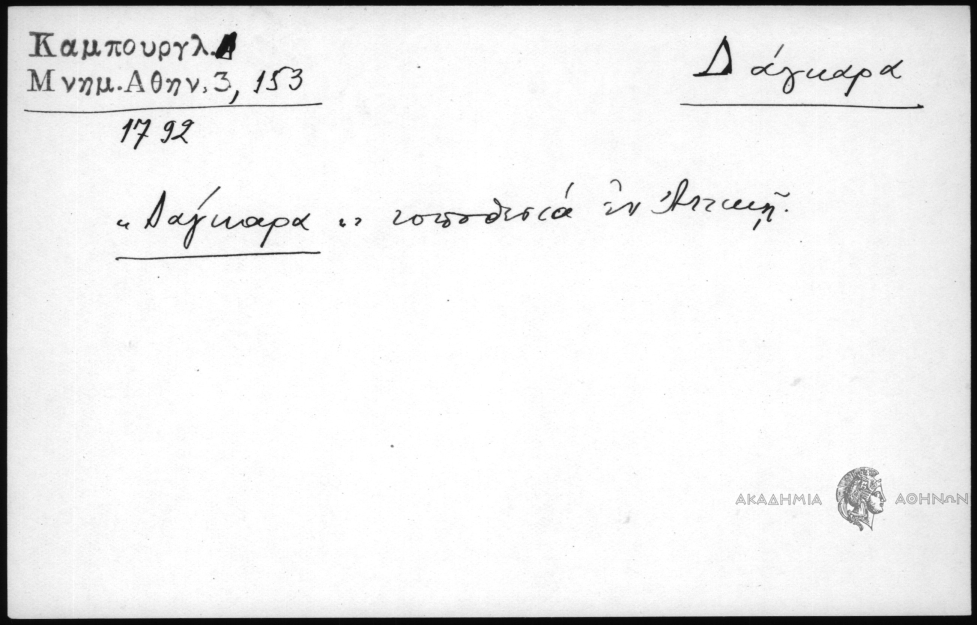 Καμπουργλ.
Μνημ. Αθην. 3, 153
1792
Δάγκαρα
"Δάγκαρα" τοποθεσιά ἐν Ἀττικῇ.
ΑΚΑΔΗΜΙΑ ΑΘΗΝΩΝ